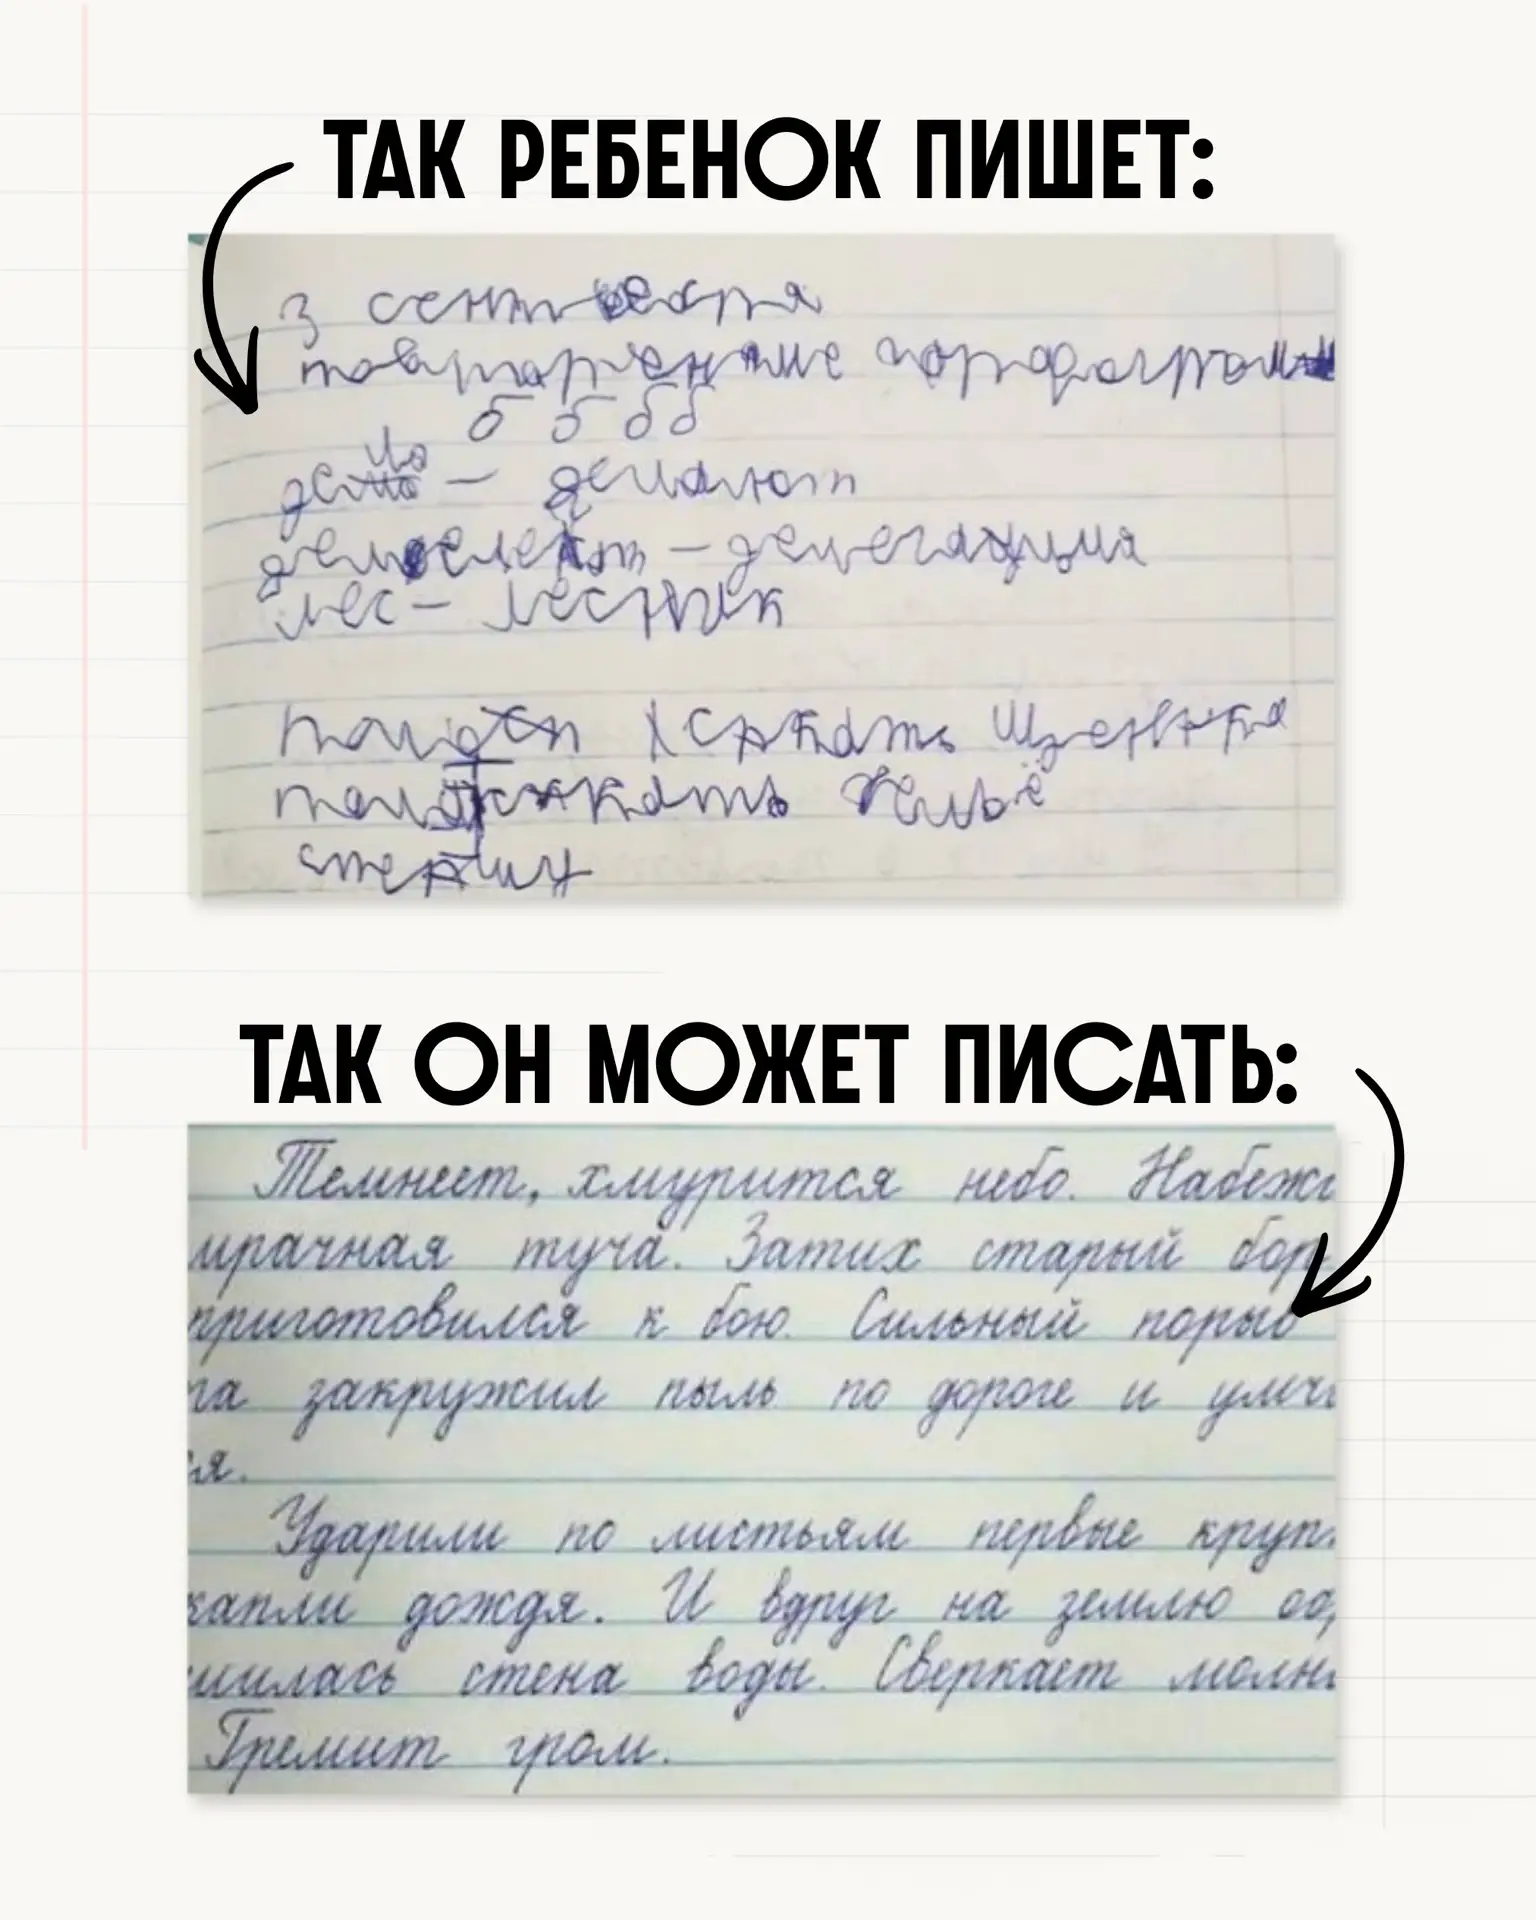 ТАК РЕБЕНОК ПИШЕТ:
3 сентября
б б б б
дело — делают
— делегация
лес — лесник
ТАК ОН МОЖЕТ ПИСАТЬ:
Темнеет, хмурится небо. Набеж
мрачная туча. Затих старый бор
приготовился к бою. Сильный порыв
га закружил пыль по дороге и умч
ся.
Ударили по листьям первые круп
капли дождя. И вдруг на землю об
шилась стена воды. Сверкает молн
Гремит гром.